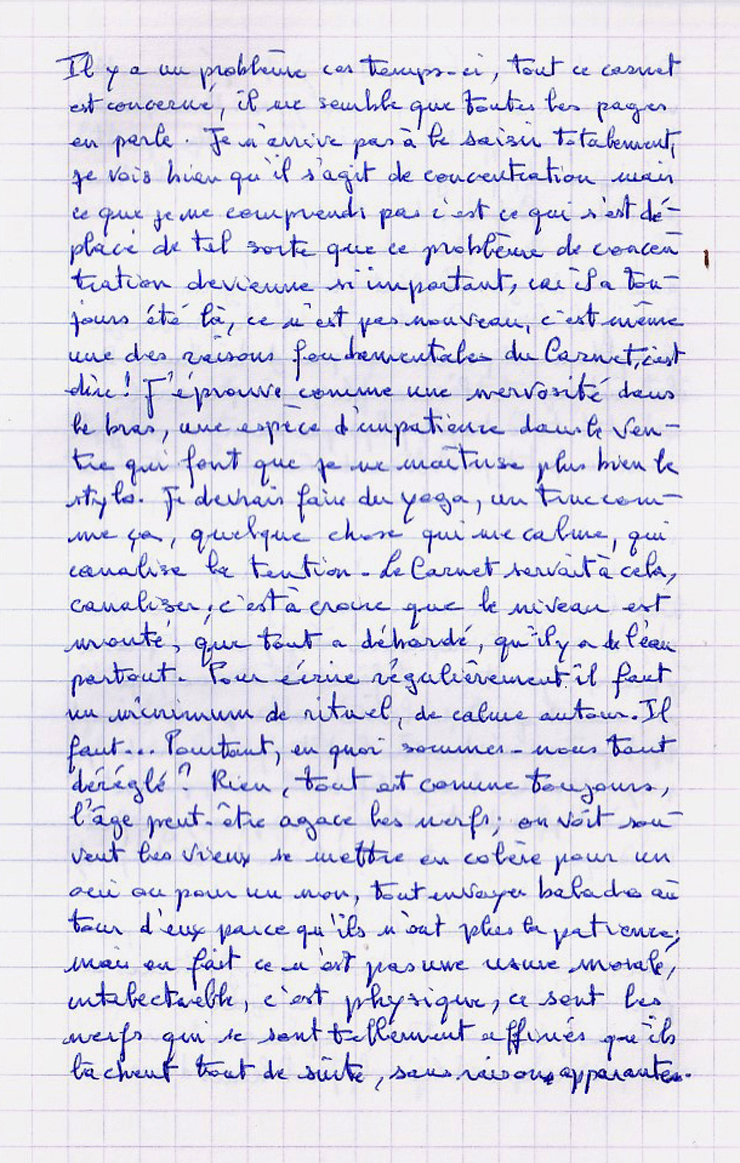 Il y a un problème ces temps-ci, tout ce carnet
est concerné, il me semble que toutes les pages
en parle. Je n'arrive pas à le saisir totalement,
je vois bien qu'il s'agit de concentration mais
ce que je ne comprends pas c'est ce qui s'est dé-
placé de tel sorte que ce problème de concen
tration devienne si important, car il a tou-
jours été là, ce n'est pas nouveau, c'est même
une des raisons fondamentales du Carnet, c'est
dire! J'éprouve comme une nervosité dans
le bras, une espèce d'impatience dans le ven-
tre qui font que je ne maîtrise plus bien le
stylo. Je devrais faire du yoga, un truc com-
me ça, quelque chose qui me calme, qui
canalise la tention - Le Carnet servait à cela,
canaliser, c'est à croire que le niveau est
monté, que tout a débordé, qu'il y a de l'eau
partout. Pour écrire régulièrement il faut
un minimum de rituel, de calme autour. Il
faut... Pourtant, en quoi sommes-nous tant
déréglé? Rien, tout est comme toujours,
l'âge peut-être agace les nerfs; on voit sou-
vent les vieux se mettre en colère pour un
oui ou pour un non, tout envoyer balader au
tour d'eux parce qu'ils n'ont plus la patience;
mais en fait ce n'est pas une usure morale,
intelectuelle, c'est physique, ce sont les
nerfs qui se sont tellement affinés qu'ils
lâchent tout de suite, sans raisons apparantes.